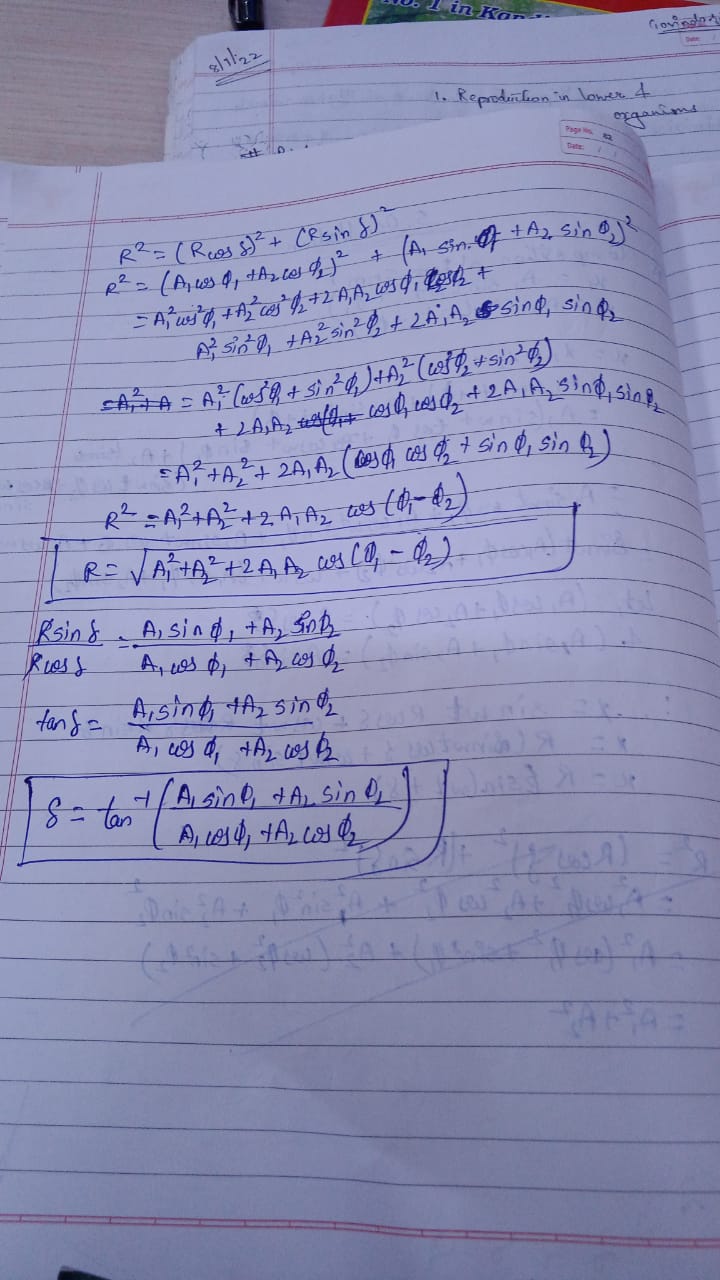 No. 1 in Kan
8/7/22
1. Reproduction in lower &
organisms
Page No. 82
Date: / /
Date:
R² = (R cos δ)² + (R sin δ)²
R² = (A₁ cos ϕ₁ + A₂ cos ϕ₂)² + (A₁ sin ϕ₁ + A₂ sin ϕ₂)²
= A₁² cos² ϕ₁ + A₂² cos² ϕ₂ + 2A₁A₂ cos ϕ₁ cos ϕ₂ +
A₁² sin² ϕ₁ + A₂² sin² ϕ₂ + 2A₁A₂ sin ϕ₁ sin ϕ₂
= A₁² + A = A₁² (cos² ϕ₁ + sin² ϕ₁) + A₂² (cos² ϕ₂ + sin² ϕ₂)
+ 2A₁A₂ cos ϕ₁ cos ϕ₂ + 2A₁A₂ sin ϕ₁ sin ϕ₂
= A₁² + A₂² + 2A₁A₂ (cos ϕ₁ cos ϕ₂ + sin ϕ₁ sin ϕ₂)
R² = A₁² + A₂² + 2A₁A₂ cos (ϕ₁ - ϕ₂)
R = √A₁² + A₂² + 2A₁A₂ cos (ϕ₁ - ϕ₂)
R sin δ / R cos δ = A₁ sin ϕ₁ + A₂ sin ϕ₂ / A₁ cos ϕ₁ + A₂ cos ϕ₂
tan δ = A₁ sin ϕ₁ + A₂ sin ϕ₂ / A₁ cos ϕ₁ + A₂ cos ϕ₂
δ = tan⁻¹ (A₁ sin ϕ₁ + A₂ sin ϕ₂ / A₁ cos ϕ₁ + A₂ cos ϕ₂)